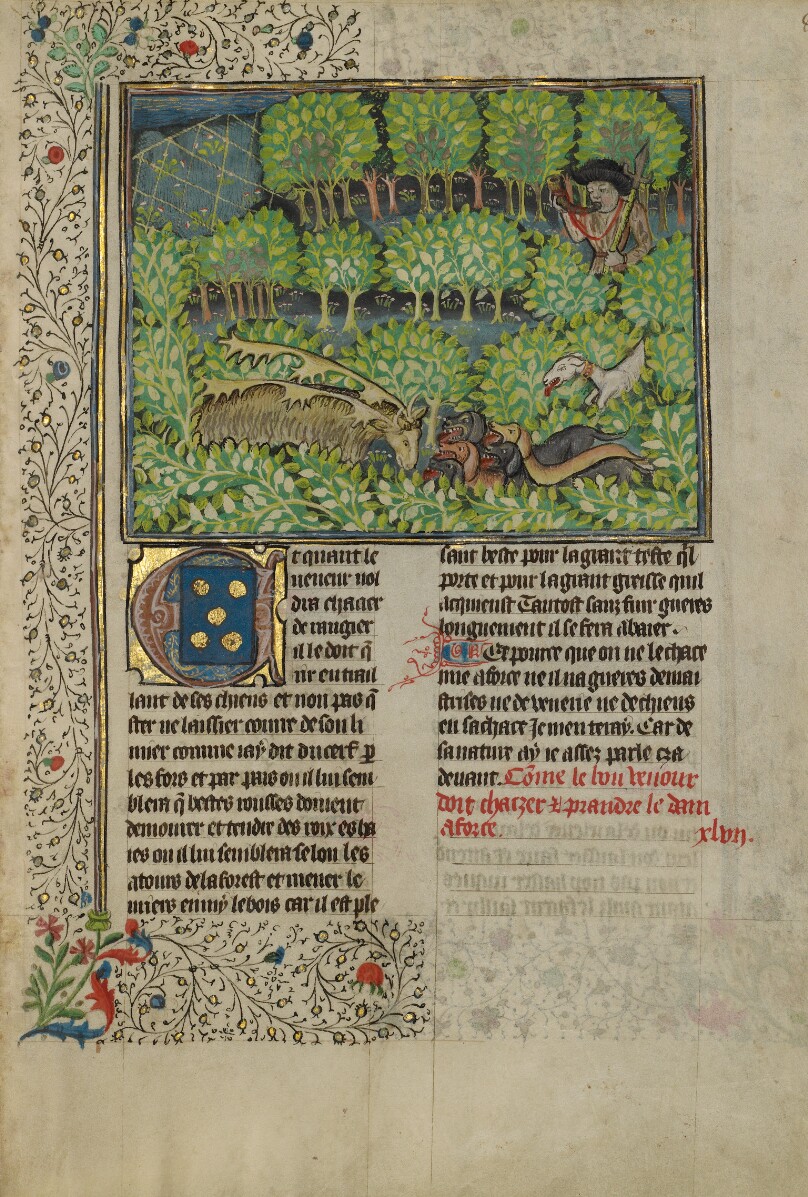 Et quant le
veneur vol
dra chacer
de rangier
il le doit q̄
rir en trail
lant de ses chiens et non pas q̄
ster ne laissier courre de son li
mier comme iay dit du cerf p̲
les fors et par pais ou il lui sem
blera q̄ bestes rousses doivent
demourer et tendre des roix et ha
ies ou il lui semblera selon les
atours de la forest et mener le
miers en my le bois car il est ple
sant beste pour la grant teste q̄l
porte et pour la grant gresse quil
acquiest Tantost sanz fuir gueres
longuement il se fera abaier.
Et pource que on ne le chace
mie a force ne il na gueres demai
strises ne de veneur ne de chiens
en sa chace Je men teray. Car de
sa nature ay ie assez parle cza
devant. Cōme le bon venour
doit chaczer & prandre le dain
a force. xlvii.